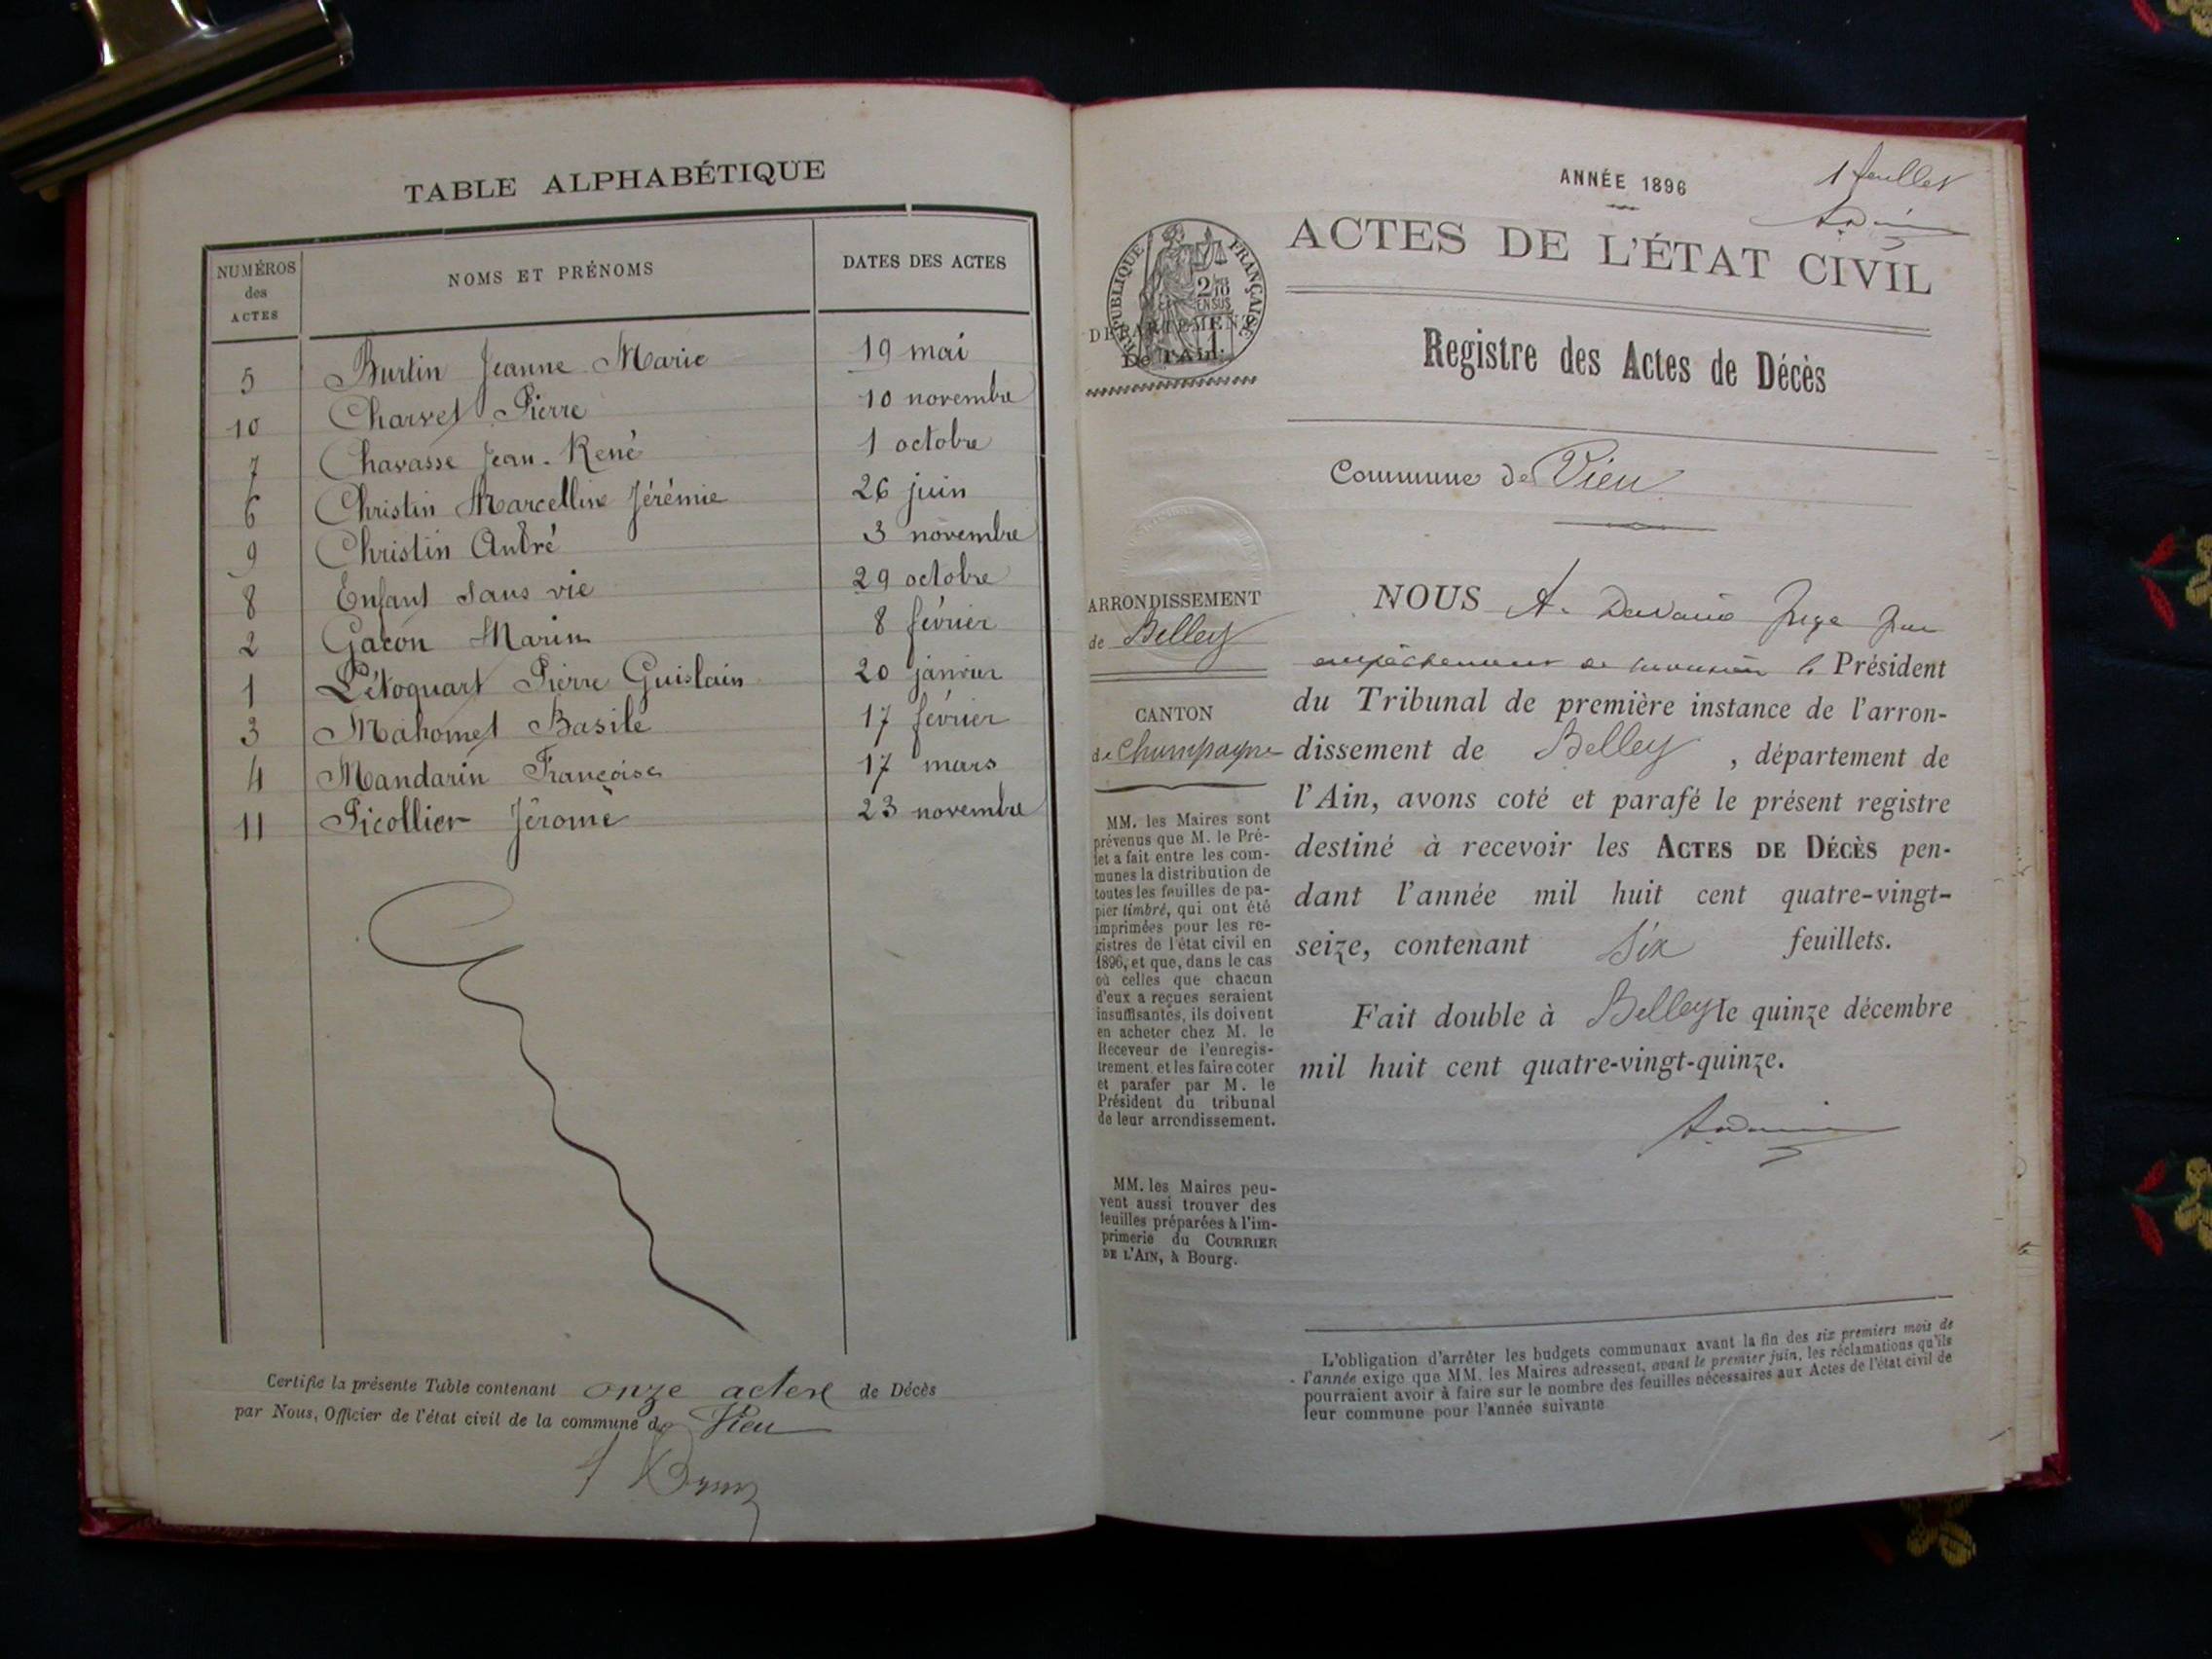 TABLE ALPHABÉTIQUE
NUMÉROS des ACTES NOMS ET PRÉNOMS DATES DES ACTES
5 Burtin Jeanne Marie 19 mai
10 Charvet Pierre 10 novembre
7 Chavasse Jean-René 1 octobre
6 Christin Marcellin Jérémie 26 juin
9 Christin André 3 novembre
8 Enfant sans vie 29 octobre
2 Gacon Marin 8 février
1 Létoquart Pierre Guislain 20 janvier
3 Mahomet Basile 17 février
4 Mandarin Françoise 17 mars
11 Picollier Jérome 23 novembre
Certifié la présente Table contenant onze actes de Décès
par Nous, Officier de l'état civil de la commune de Vieu
ANNÉE 1896
1 feuillet
ACTES DE L'ÉTAT CIVIL
RÉPUBLIQUE FRANÇAISE
2/10 EN SUS
DÉPARTEMENT
De l'Ain.
Registre des Actes de Décès
Commune de Vieu
ARRONDISSEMENT
de Belley
CANTON
de Champagne
MM. les Maires sont
prévenus que M. le Pré-
fet a fait entre les com-
munes la distribution de
toutes les feuilles de pa-
pier timbré, qui ont été
imprimées pour les re-
gistres de l'état civil en
1896, et que, dans le cas
où celles que chacun
d'eux a reçues seraient
insuffisantes, ils doivent
en acheter chez M. le
Receveur de l'enregis-
trement et les faire coter
et parafer par M. le
Président du tribunal
de leur arrondissement.
MM. les Maires peu-
vent aussi trouver des
feuilles préparées à l'im-
primerie du COURRIER
DE L'AIN, à Bourg.
NOUS A. Juge par
empêchement de monsieur le Président
du Tribunal de première instance de l'arron-
dissement de Belley, département de
l'Ain, avons coté et parafé le présent registre
destiné à recevoir les ACTES DE DÉCÈS pen-
dant l'année mil huit cent quatre-vingt-
seize, contenant six feuillets.
Fait double à Belley le quinze décembre
mil huit cent quatre-vingt-quinze.
L'obligation d'arrêter les budgets communaux avant la fin des six premiers mois de
l'année exige que MM. les Maires adressent, avant le premier juin, les réclamations qu'ils
pourraient avoir à faire sur le nombre des feuilles nécessaires aux Actes de l'état civil de
leur commune pour l'année suivante